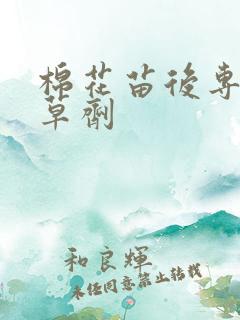 棉花苗後專
草劑
和良輝
未经同意禁止转载